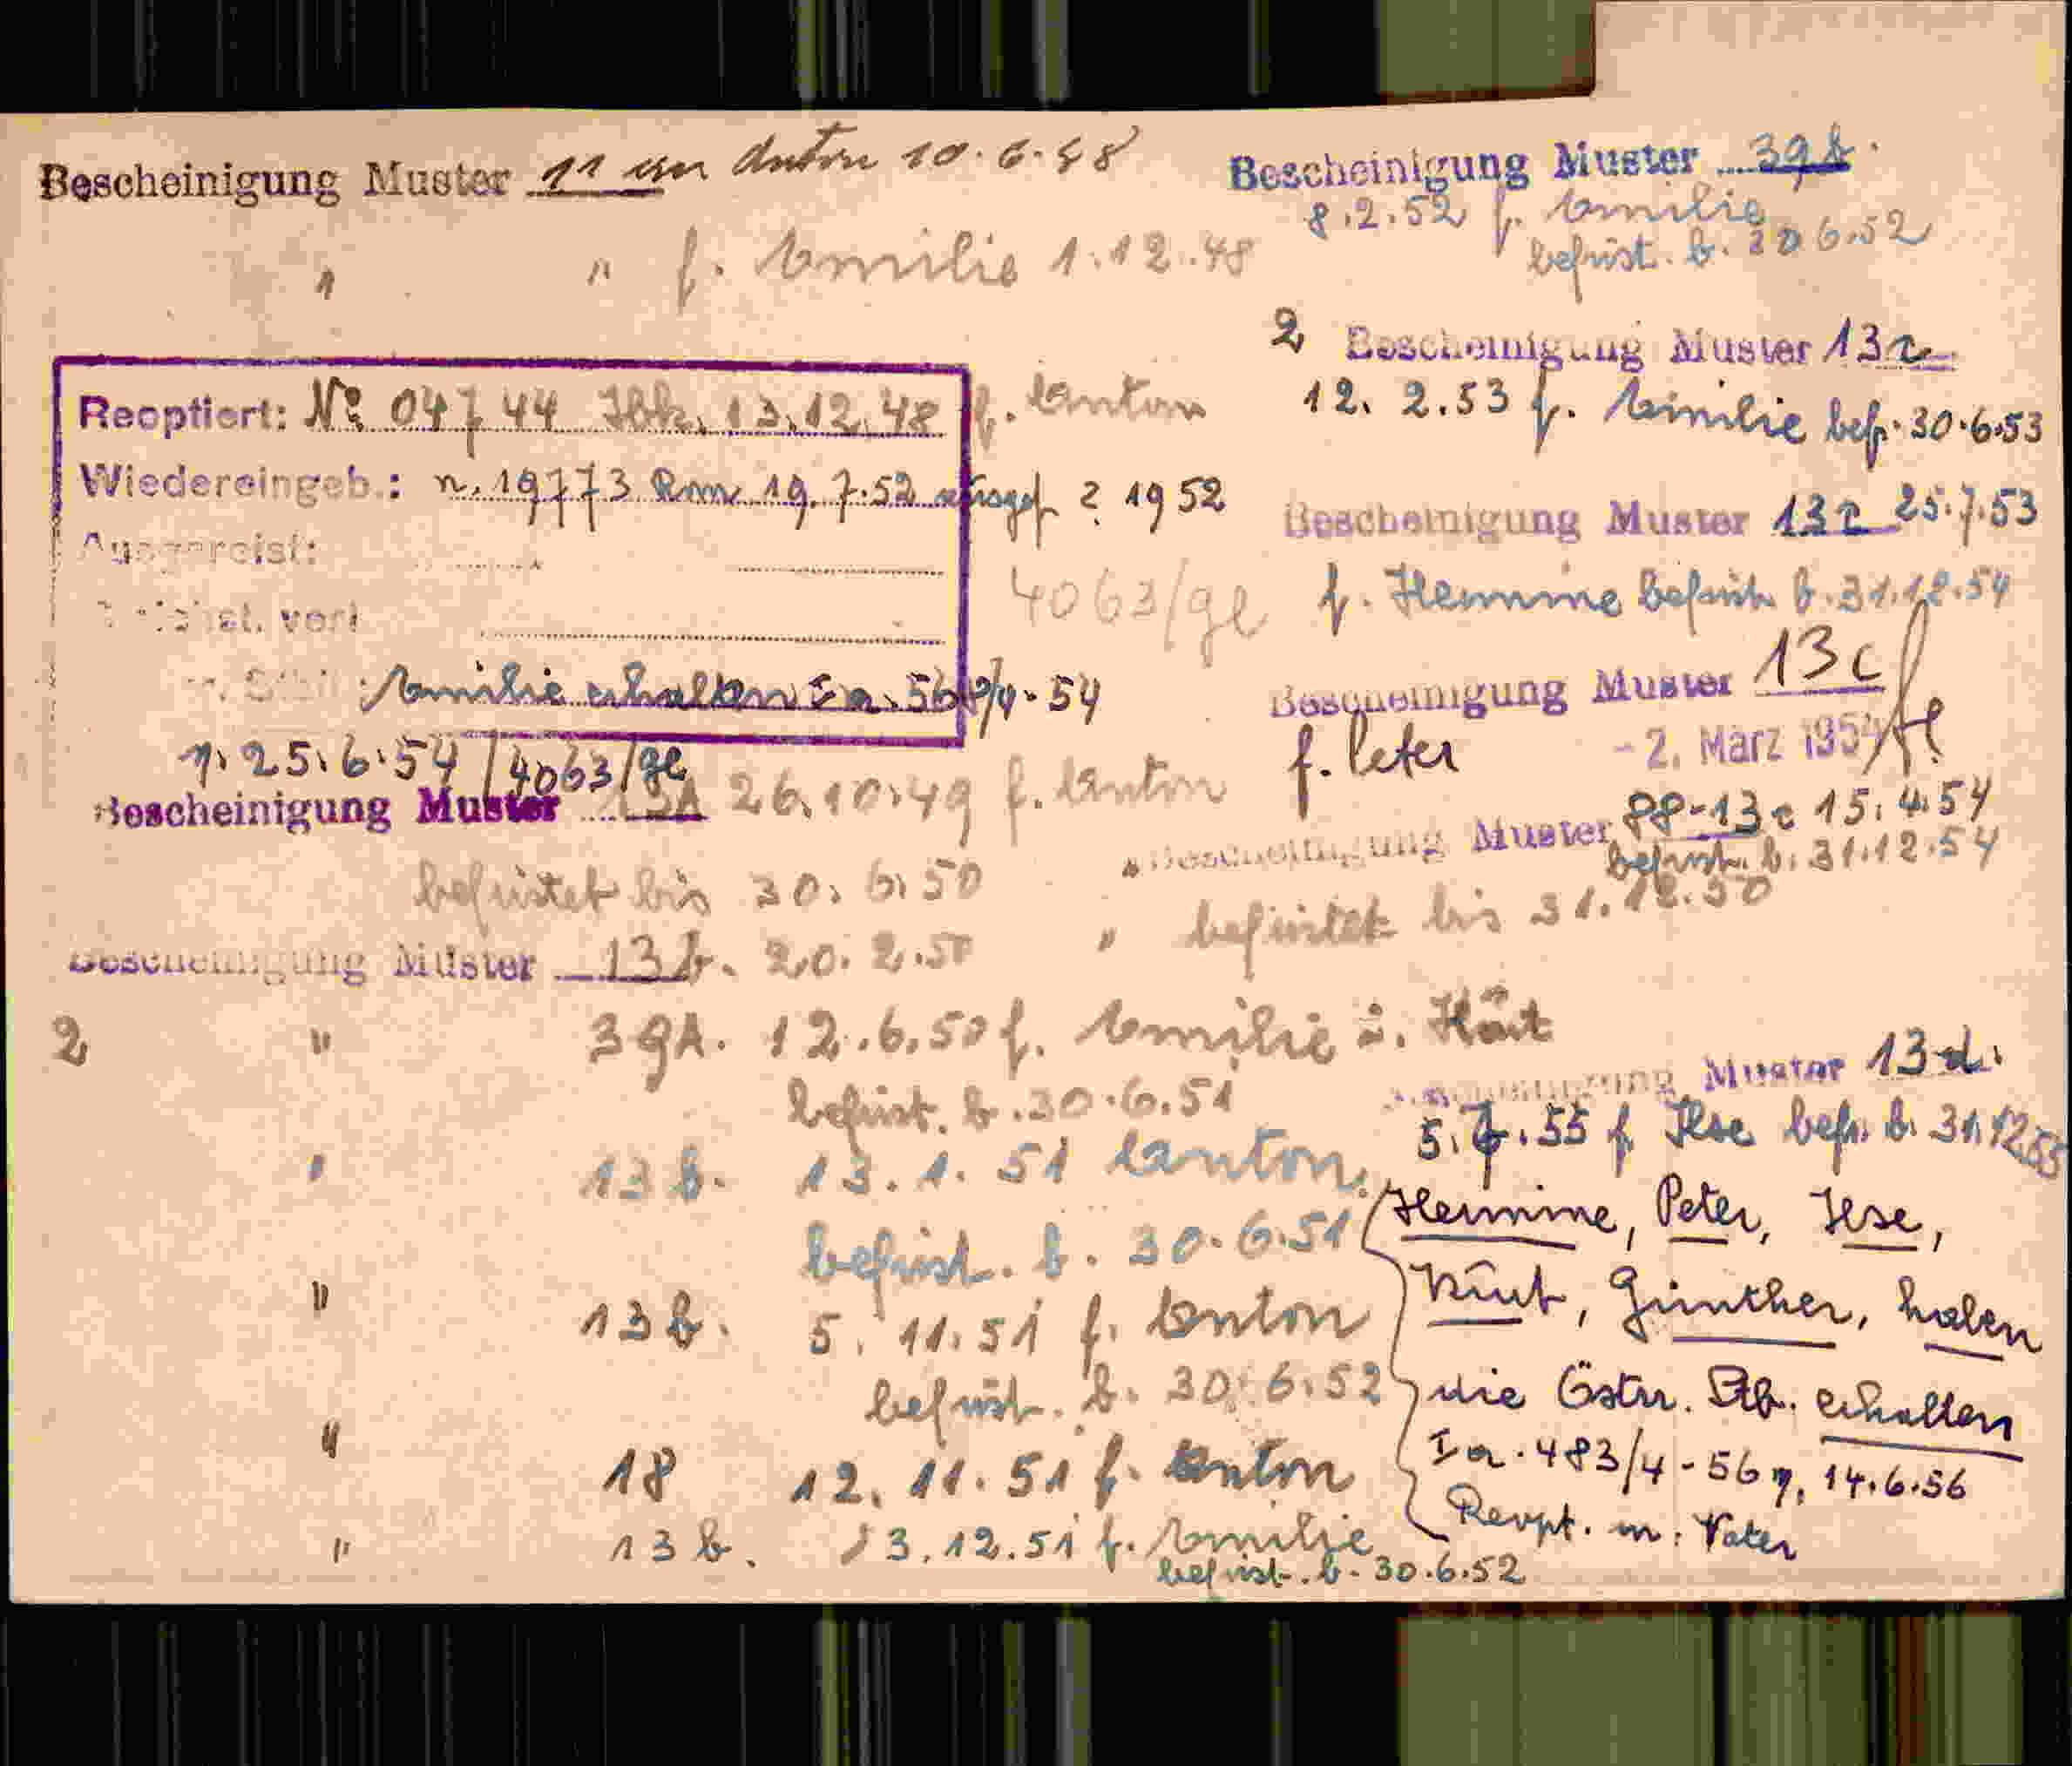 Bescheinigung Muster 11 Anton 10.6.48
" " f. Emilie 1.12.48
Reoptiert: No 04744 Ibk. 13.12.48 f. Anton
Wiedereingeb.: n. 19773 Rom 19.7.52 ? 1952
Ausgereist:
4063/ge
Emilie erhalten Ia. 56 /4-54
v. 25.6.54 / 4063/ge
Bescheinigung Muster 13A 26.10.49 f. Anton
befristet bis 30.6.50
Bescheinigung Muster 13b. 20.2.50
" befristet bis 31.12.50
2 " 39A. 12.6.50 f. Emilie
befrist. b. 30.6.51
" 13b. 13.1.51 Anton
befrist. b. 30.6.51
" 13b. 5.11.51 f. Anton
befrist. b. 30.6.52
" 18 12.11.51 f. Anton
" 13b. 3.12.51 f. Emilie
befrist. b. 30.6.52
Bescheinigung Muster 39b.
8.2.52 f. Emilie
befrist. b. 30.6.52
2 Bescheinigung Muster 13c
12.2.53 f. Emilie bef. 30.6.53
Bescheinigung Muster 13c 25.7.53
f. Hermine befrist. b. 31.12.54
Bescheinigung Muster 13c
f. Peter -2. März 1954
Bescheinigung Muster 88-13c 15.4.54
befrist. b. 31.12.54
Bescheinigung Muster 13d.
5.7.55 f. Ilse befr. b. 31.12.55
Hermine, Peter, Ilse,
Kurt, Günther, haben
die Östr. Stb. erhalten
Ia. 483/4-56 v. 14.6.56
Reopt. m. Vater